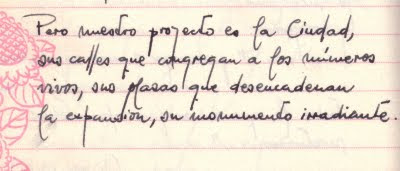 Pero nuestro proyecto es la Ciudad,
sus calles que congregan a los números
vivos, sus plasas que desencadenan
la expansión, su monumento irradiante.